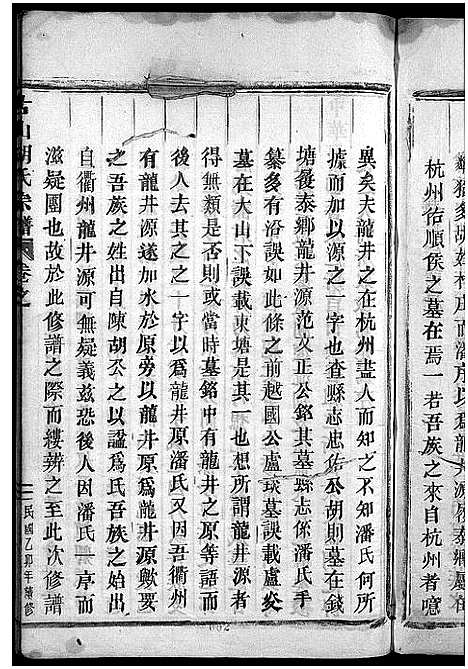 杭州佑順侯之墓在焉一若吾族之來自杭州者噫
異矣夫龍井之在杭州盡人而知之不知潘氏何所
據而加以源之一字也查縣志忠佑公胡則墓在錢
塘履泰鄉龍井源范文正公銘其墓縣志係潘氏手
纂多有沿誤如此條之前越國公盧琰誤載盧炎
墓在大山下誤載東塘是其一也想所謂龍井源者
得無類是否則或當時墓銘中有龍井之原句
後人去其之之一字以爲龍井原潘氏又因吾衢州
有龍井源遂加水於原旁以龍井原爲龍井源歟要
之吾族之姓出自陳胡公之以諡爲氏吾族之始出
自衢州龍井源可無疑義茲恐後人因潘氏序而
滋疑團也故於此修譜之際而縷辨之至此次修譜
山胡氏宗譜
卷之
民國乙卯年續修